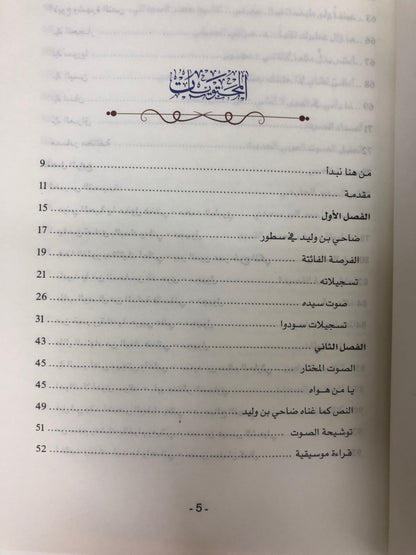 المحتويات
من هنا نبدأ 9
مقدمة 11
الفصل الأول 15
ضاحي بن وليد في سطور 17
الفرصة الفائتة 19
تسجيلاته 21
صوت سيده 26
تسجيلات سودوا 31
الفصل الثاني 43
الصوت المختار 45
يا من هواه 45
النص كما غناه ضاحي بن وليد 49
توشيحة الصوت 51
قراءة موسيقية 52
- 5 -